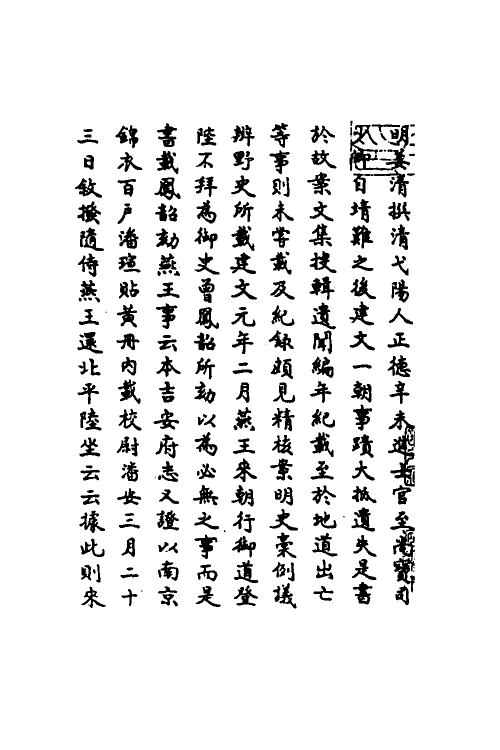 明姜清撰清弋陽人正德辛未進士官至尚寶司
少卿自靖難之後建文一朝事蹟大抵遺失是書
於故案文集搜輯遺聞編年紀載至於地道出亡
等事則未嘗載及紀録頗見精核案明史稾例議
辨野史所載建文元年二月燕王來朝行御道登
陸不拜為御史曾鳳韶所劾以為必無之事而是
書載鳳韶劾燕王事云本吉安府志又證以南京
錦衣百户潘瑄貼黄冊内載校尉潘安三月二十
三日敘撥隨侍燕王還北平陸坐云云據此則來